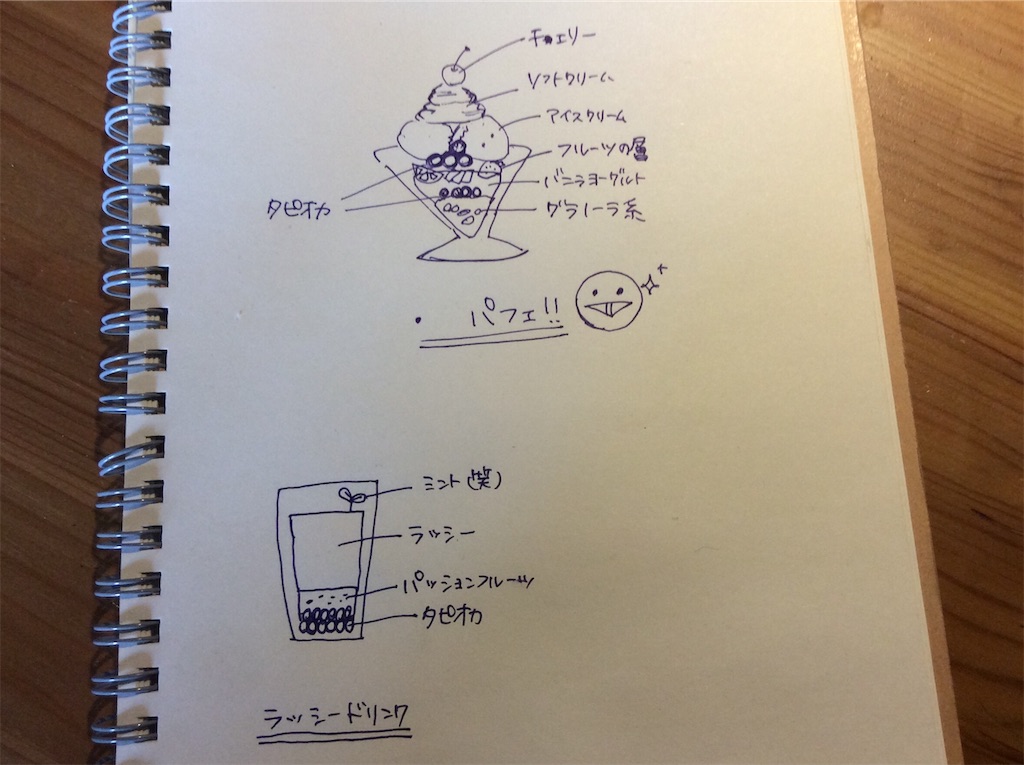 チェリー
ソフトクリーム
アイスクリーム
フルーツの層
バニラヨーグルト
タピオカ
グラノーラ系
・ パフェ!!
ミント(笑)
ラッシー
パッションフルーツ
タピオカ
ラッシードリンク